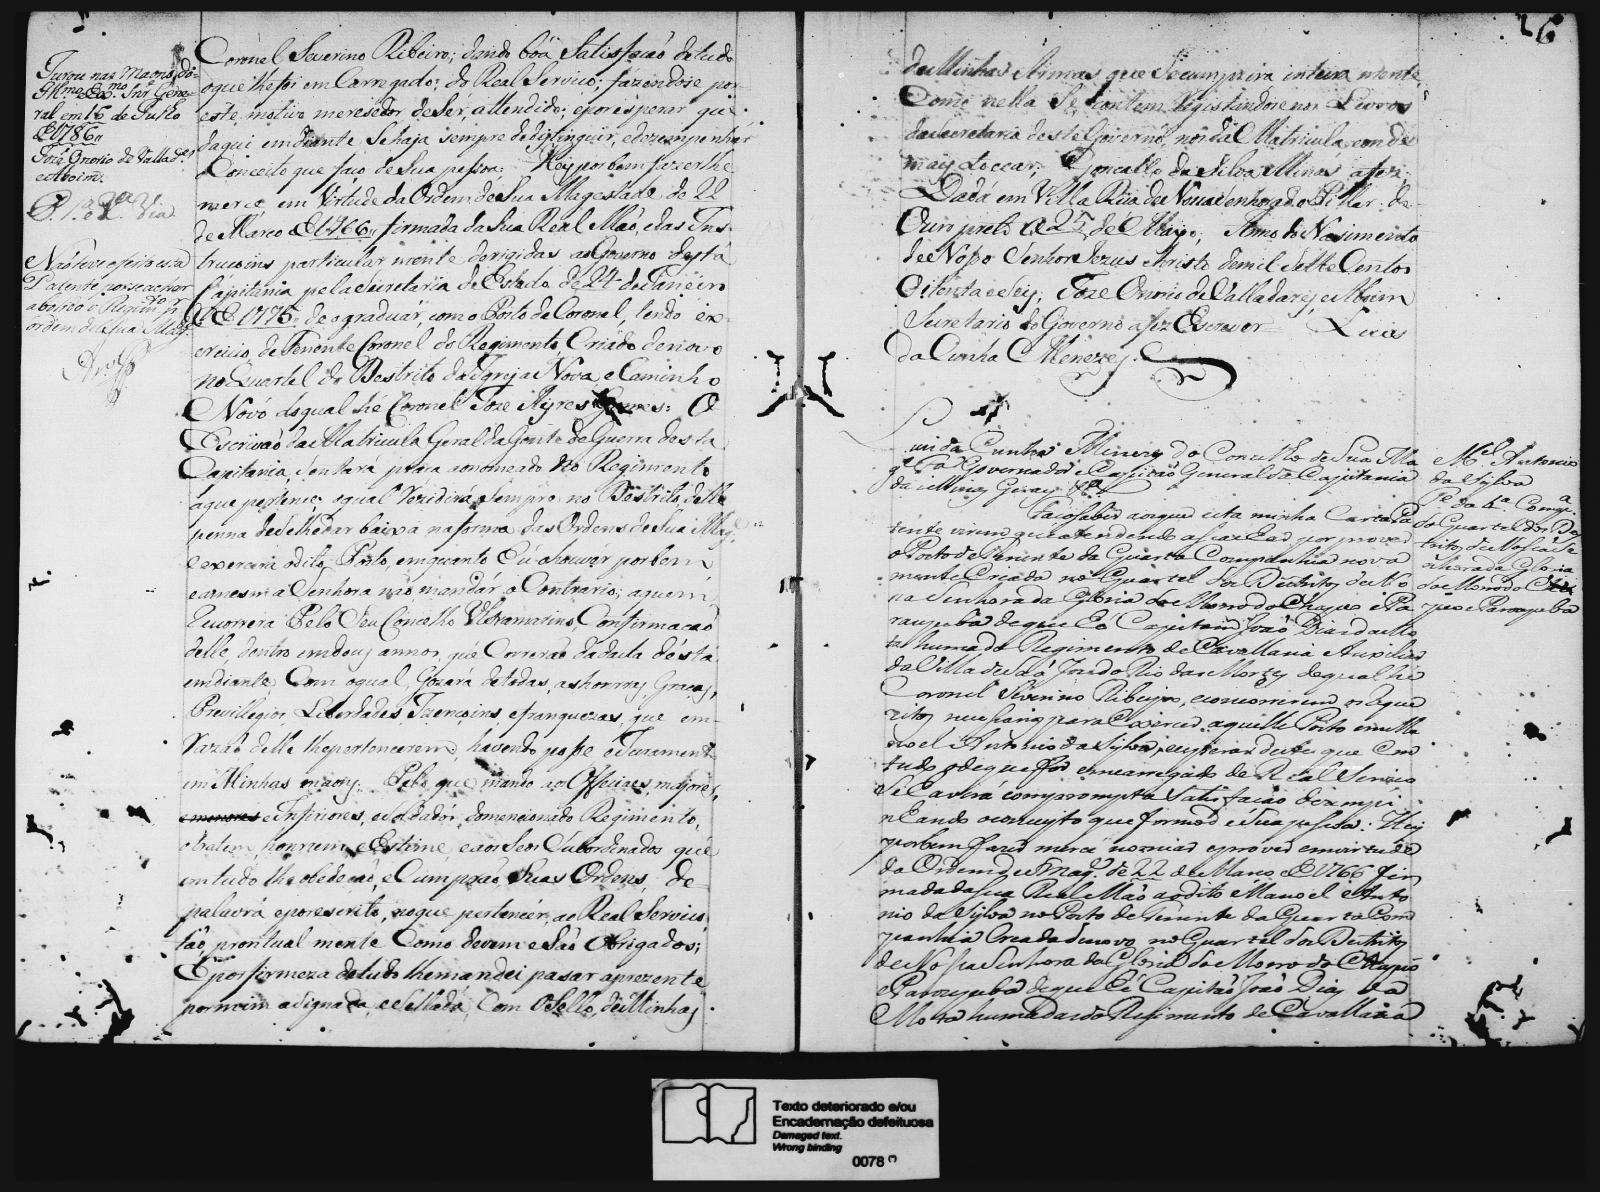 Jurou nas maons do
Illmo. Exmo. Snr. Gene-
ral em 16 de Julho
de 1786
Joze Onorio de Vallad.es
e Aboim.
P. 1.a e 2.a Via
Não teve efeito esta
Patente por se achar
abolido o Regim.to p.r
ordem de Sua Mag.e
Coronel Severino Ribeiro; dando boa Satisfação de tudo
o que lhe foi em Carregado; do Real Servico; fazendose por
este motivo meresedor de Ser attendido; e por esperar que
daqui em diante Sehaja sempre de distinguir, e dezempenhar
o Conceito que faço de Sua pessoa: Hey por bem fazer lhe
merce em Virtude da Ordem de Sua Magestade de 22
de Março de 1766,, firmada da Sua Real Mão, e das Ins-
trucoins particular mente dirigidas ao Governo desta
Capitania pela Secretaria de Estado de 24 de Janeiro
de 1775,, de o graduar, com o Posto de Coronel, tendo ex-
ercicio, de Tenente Coronel do Regimento, Criado de novo
no Quartel do Destrito da Igreja Nova, e Caminho
Novo do qual hé Coronel Joze Ayres Gomes: O
Escrivão da Matricula Geral da Gente de Guerra desta
Capitania, Sentará praça ao nomeado no Regimento
a que pertence, o qual Rezidirá Sempre no Destrito delle
penna de Selhe dar baixa na forma das Ordens de Sua Mag.e
e exercerá o dito Posto, em quanto Eu o houver por bem
e a mesma Senhora não mandár o Contrario; a quem
Recorrera Pelo Seu Concelho Ultramarino, Confirmação
delle, dentro em dous annos, que Correrão da data desta
em diante, Com o qual, Gozará de todas, as honras, Gracas,
Previllegios, Liberdades, Izencoins, e franquezas, que em
Razaõ delle lhe pertencerem, havendo posse e Juramento
em Minhas maons. Pelo que mando aos Officiaes, majores,
e menores e Infiriores, e Soldados, do mencionado Regimento,
o hatem, honrem, e Estime, e aos Seos Subordinados que
em tudo lhe obedeção, e Cumprão, Suas Ordens, de
palavra, e por escrito, no que pertencer, ao Real Servico,
tão prontual mente Como devem e São obrigados;
E por firmeza de tudo lhe mandei pasar a prezente
por mim asignada, e Sellada, Com o Sello, de Minhas
6
de Minhas Armas, que Secumprirá inteira mente
Como nella Se contem, Registandose nos Livros
da Secretaria deste Governo, no da Matricula, e onde
mais toccar; Goncallo da Silva Minas a fez.
Dada em Villa Rica de Nossa Senhora do Pillar de
Ouro preto a 25 de Mayo, Anno do Nasimento
de Nosso Senhor Jezus Christo de mil Sette Centos
Oitenta e Seis, Joze Onorio de Valladares e Aboim
Secretario do Governo a fez Escrever Luis
da Cunha Menezes.
Luis da Cunha Menezes do Concelho de Sua Ma
g.e F.a Governador e Capitão General da Capitania
de Minas Geraes &.a
Faço saber aos que esta minha Carta Pa
tente virem que atendendo a se axar por prover
o Posto de Tenente da Quarta Companhia nova
mente Creada no Quartel dos Destritos de No
ssa Senhora da Gloria do Morro do Chapeo e Pa
raupeba de que hé Capitam João Dias da Mo
ta huma do Regimento de Cavallaria Auxiliar
da Villa de São João do Rio das Mortes de qual hé
Coronel Severino Ribeiro, e concorrerem os reque
zitos nececarios para exercer aquelle Posto em Ma
noel Antonio da Sylva; e esperar deste que em
tudo o de que for encarregado do Real Serviço
Se averá com prompta satisfação dezempe
nhando o conceyto que formo de sua pessoa: Hey
por bem fazer merce nomiar e prover em virtude
da Ordem de S. Mag.e de 22 de Março de 1766 fir
mada da sua Real Mão ao dito Manoel Anto
nio da Sylva no Posto de Tenente da Quarta Com
panhia Creada de novo no Quartel dos Destritos
de Nossa Senhora da Gloria do Morro do Chapeo
e Paroupeba de que hé Capitão João Dias da
Mota huma das do Regimento de Cavallaria
M.el Antonio
da Sylva
T.e da 4.a Comp.a
do Quartel dos Des
tritos de Nossa Se
nhora da Gloria
do Morro do Cha
peo e Paroupeba
Texto deteriorado e/ou
Encadernação defeituosa
Damaged text.
Wrong binding
0078 (*)